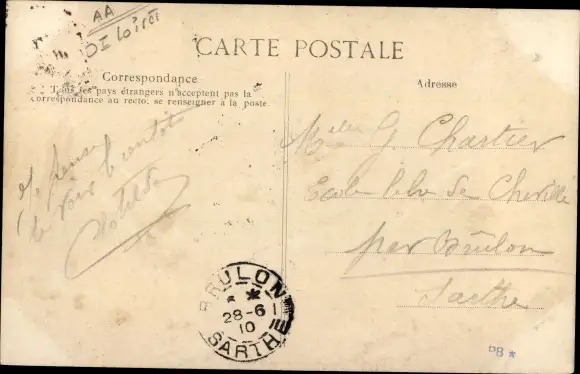 AA
OI Loire
CARTE POSTALE
Correspondance
Tous les pays étrangers n'acceptent pas la
correspondance au recto. se renseigner à la poste
Adresse
Je pense
te voir bientôt
Clotilde
Melle G. Chartier
Ecole Pbe de Chevillé
par Brûlon
Sarthe
BRULON
28-6
10
SARTHE